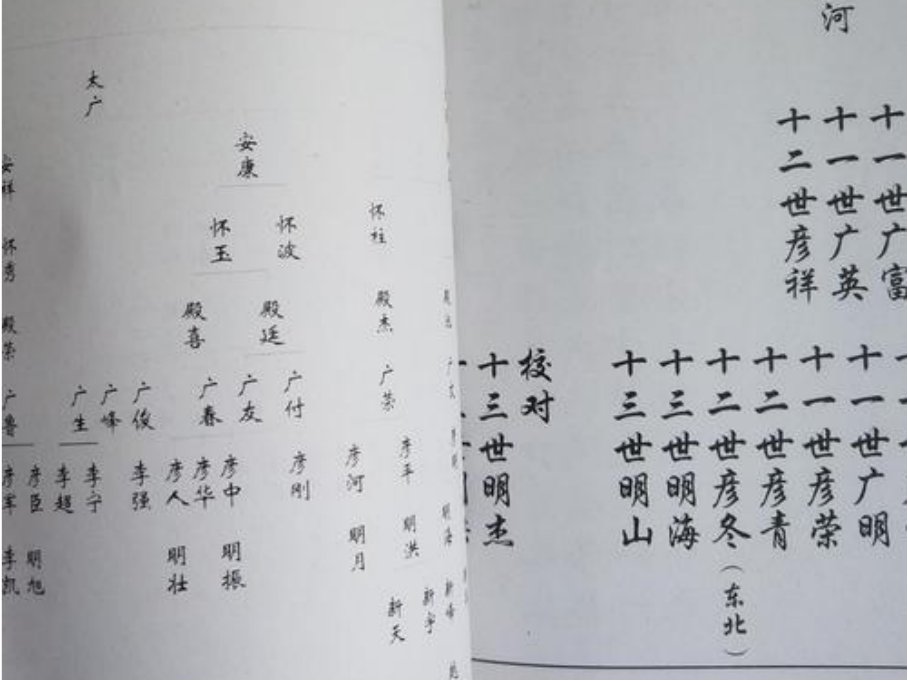 河
十一世广富
十一世广英
十二世彦祥
十一世广明
十一世彦荣
十二世彦青
十二世彦冬（东北）
十三世明海
十三世明山
校对
十三世明杰
太广
安康
安祥
怀柱
怀波
怀玉
怀秀
殿杰
殿廷
殿喜
殿荣
广荣
广付
广友
广春
广俊
广峰
广生
广鲁
彦平
彦河
彦刚
彦中
彦华
彦人
李强
李宁
李超
彦臣
彦军
明洪
明月
明振
明壮
明旭
李凯
新峰
新宇
新天